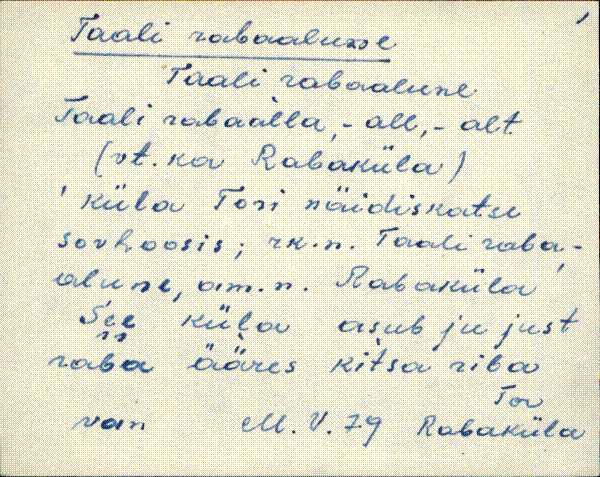 Taali rabaalune
Taali rabaalune
Taali rabaàlla, -all, -alt
(vt. ka Rabaküla)
küla Tori näidiskatse
sovhoosis; rk.n. Taali raba-
alune, am.n. Rabaküla
See küla asub ju just
raba ääres kitsa riba
Tor
van M. V. 79 Rabaküla